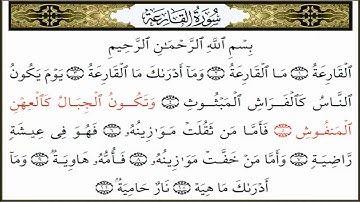 سُورَةُ القَارِعَةِ
بِسْمِ ٱللَّهِ ٱلرَّحْمَٰنِ ٱلرَّحِيمِ
ٱلْقَارِعَةُ ۝١ مَا ٱلْقَارِعَةُ ۝٢ وَمَآ أَدْرَىٰكَ مَا ٱلْقَارِعَةُ ۝٣ يَوْمَ يَكُونُ
ٱلنَّاسُ كَٱلْفَرَاشِ ٱلْمَبْثُوثِ ۝٤ وَتَكُونُ ٱلْجِبَالُ كَٱلْعِهْنِ
ٱلْمَنفُوشِ ۝٥ فَأَمَّا مَن ثَقُلَتْ مَوَٰزِينُهُۥ ۝٦ فَهُوَ فِى عِيشَةٍ
رَّاضِيَةٍ ۝٧ وَأَمَّا مَنْ خَفَّتْ مَوَٰزِينُهُۥ ۝٨ فَأُمُّهُۥ هَاوِيَةٌ ۝٩ وَمَآ
أَدْرَىٰكَ مَا هِيَهْ ۝١٠ نَارٌ حَامِيَةٌۢ ۝١١